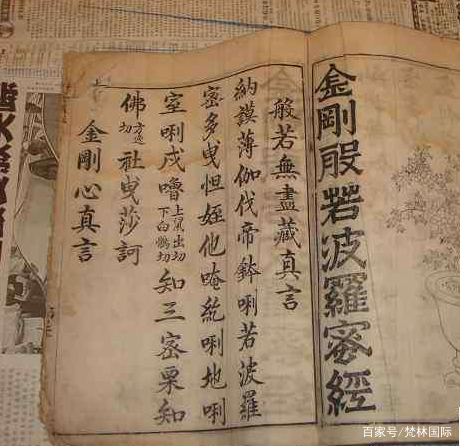 金剛般若波羅密經
般若無盡藏真言
納謨薄伽伐帝鉢唎若波羅
密多曳怛姪他唵紇唎地唎
室唎戍嚕上鼠出切下白鶴切知三密栗知
佛方逸切社曳莎訶
金剛心真言
百家号/梵林国际